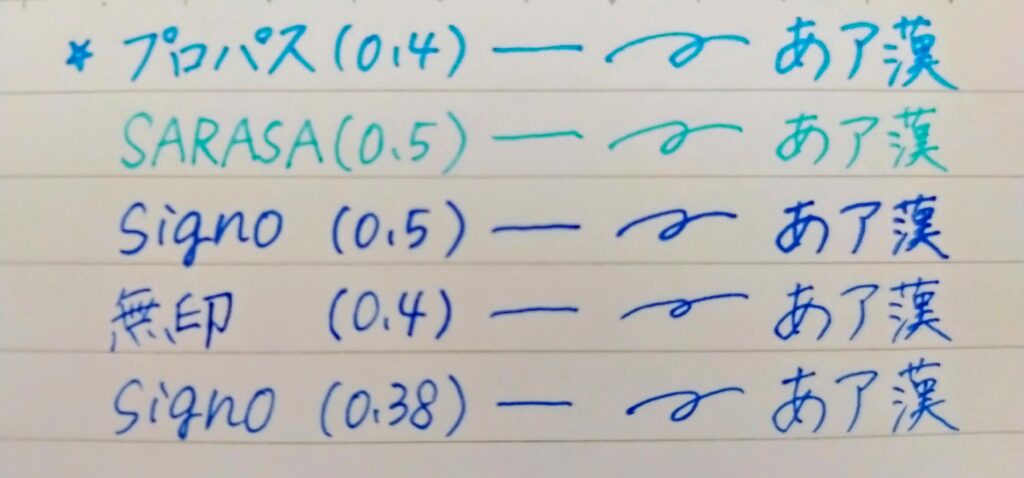 * プロパス(0.4) — あア漢
SARASA(0.5) — あア漢
Signo (0.5) — あア漢
無印 (0.4) — あア漢
Signo (0.38) — あア漢